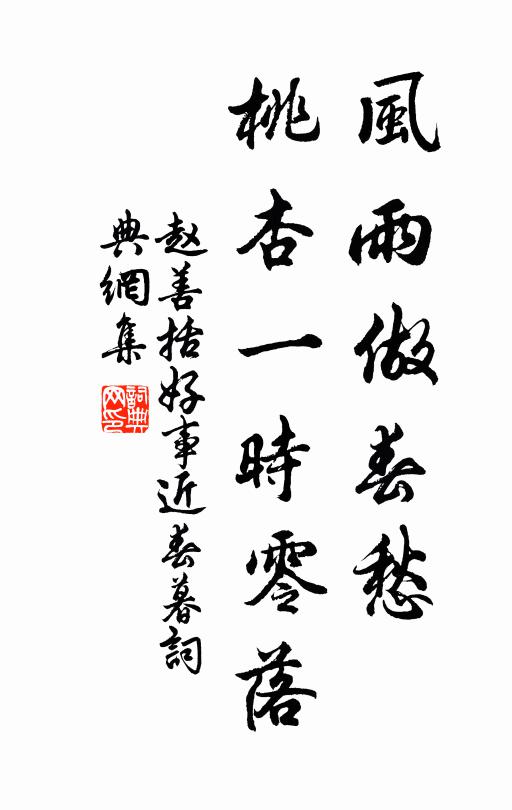 風雨做春愁
桃杏一時零落
赵善括好事近春暮詞
典網集
詞典网印